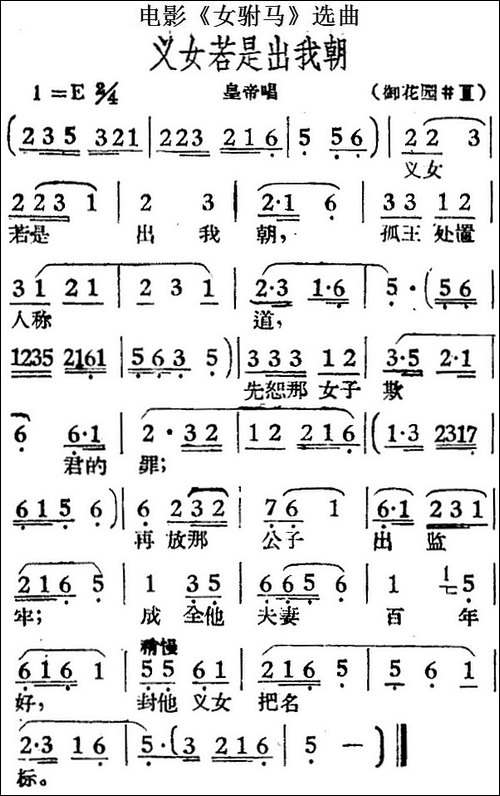 电影《女驸马》选曲
义女若是出我朝
1=E 2/4 皇帝唱 (御花园#Ⅲ)
(235 321 | 223 216 | 5 56) | 22 3
义女
223 1 | 2 3 | 2·1 6 | 33 12
若是 出 我 朝, 孤王 处置
31 21 | 23 1 | 2·3 1·6 | 5·(56
人称 道,
1235 2161 | 563 5) | 333 12 | 3·5 2·1
先恕那 女子 欺
6 6·1 | 2·32 | 12 216 | (1·3 2317
君的 罪;
615 6) | 6 232 | 76 1 | 6·1 231
再 放那 公子 出 监
216 5 | 1 35 | 6656 | 1 1/七 5
牢; 成 全他 夫妻 百 年
稍慢
616 1 | 55 61 | 216 5 | 5 6 1
好, 封他 义女 把名
2·3 16 | 5·(3 23 216 | 5 —)‖
标。